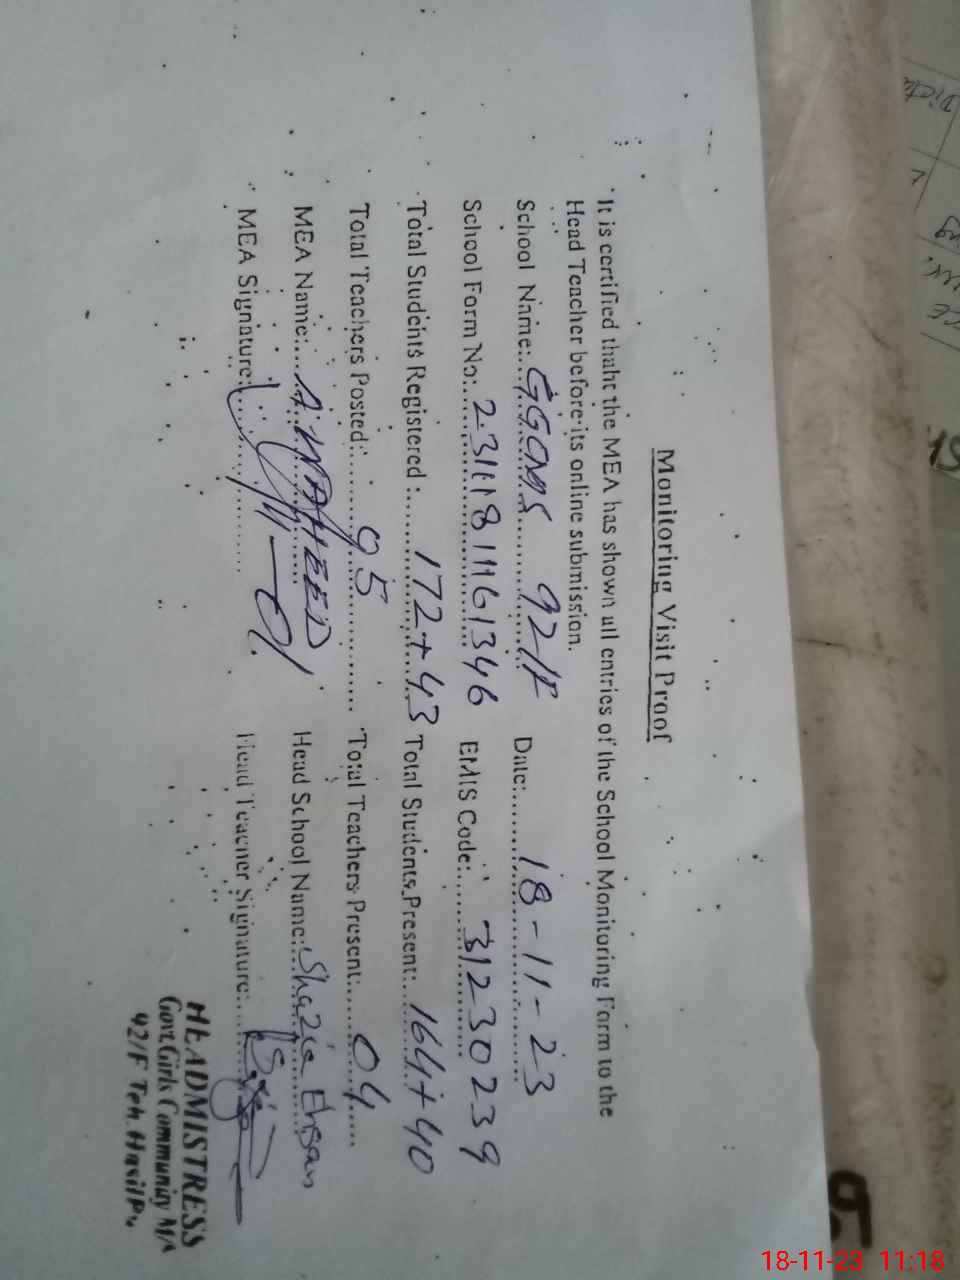 Monitoring Visit Proof
It is certified thaht the MEA has shown all entries of the School Monitoring Form to the
Head Teacher before its online submission.
School Name:....GGCMS 92/F............ Date:..........18-11-23............
School Form No:....231181161346 EMIS Code:..........31230239
Total Students Registered :..........172+43 Total Students Present:....164+40
Total Teachers Posted:..........05............ Total Teachers Present:........04....
MEA Name:....A. WAHEED Head School Name:..Shazia Ehsan
MEA Signature:.......... Head Teacher Signature:....
HEADMISTRESS
Govt. Girls Community M/
92/F Teh. Hasilpu
18-11-23 11:18